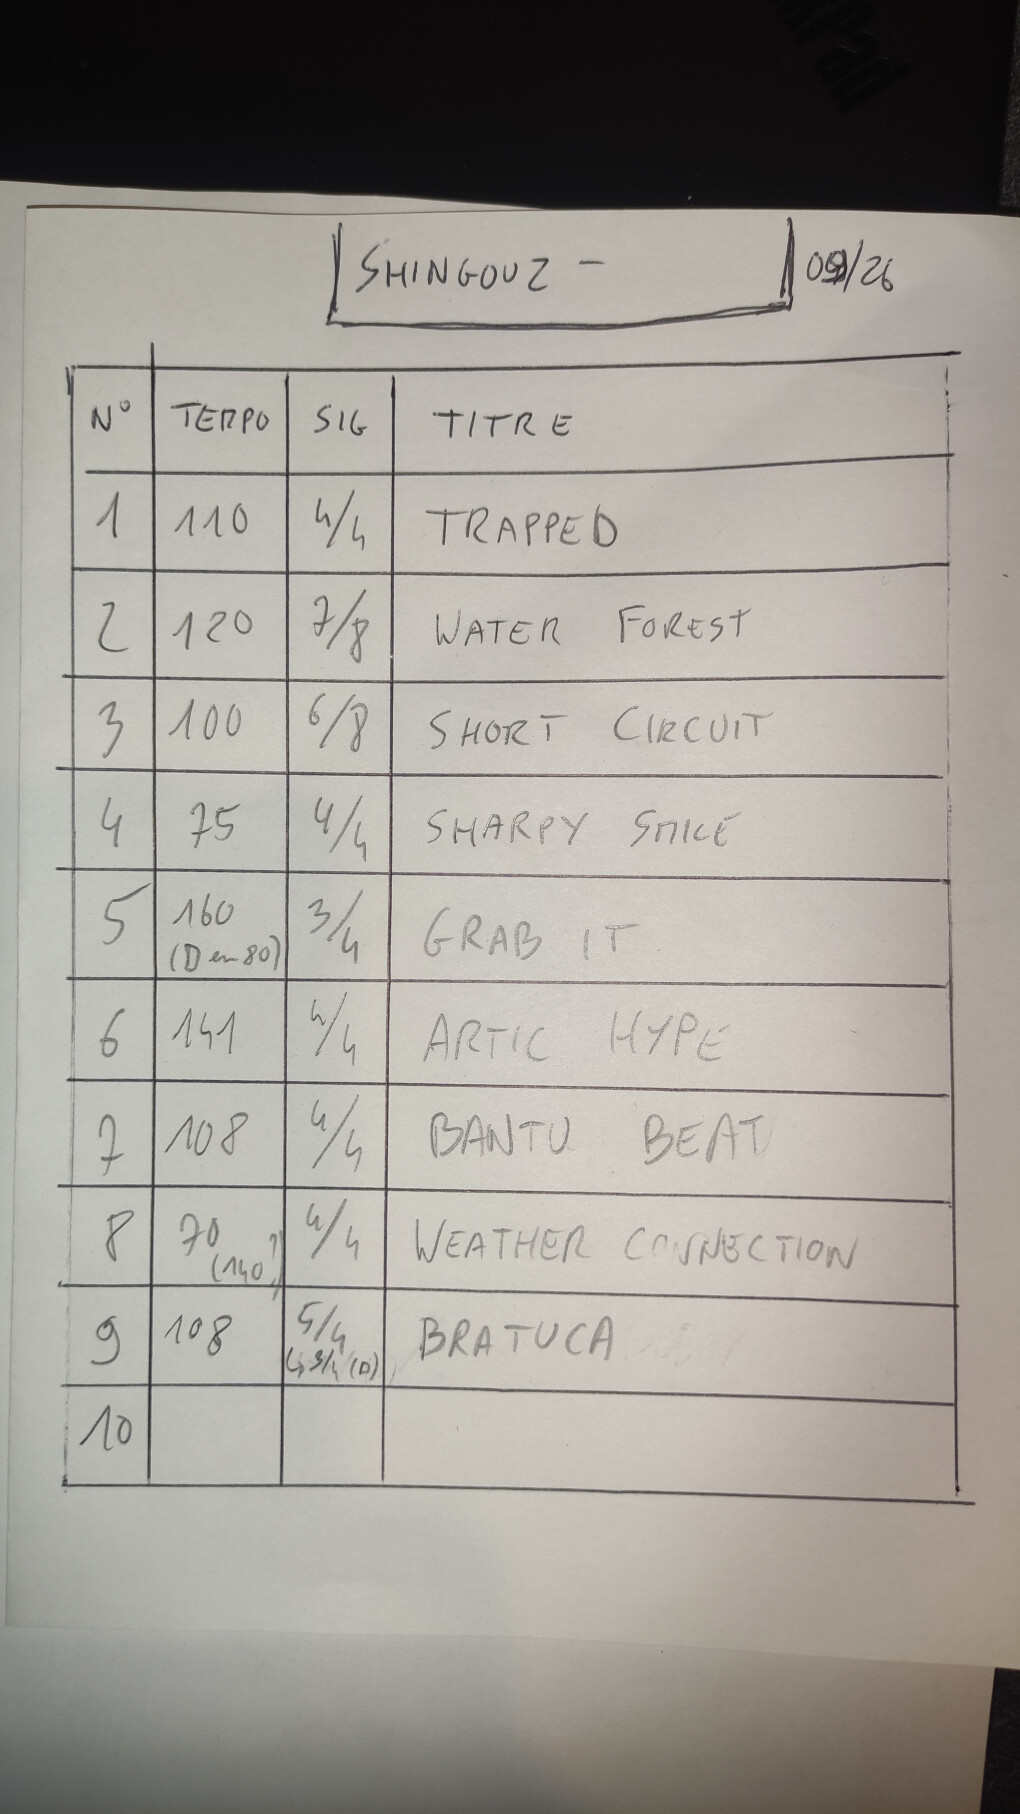 SHINGOUZ - 09/26
N° TEMPO SIG TITRE
1 110 4/4 TRAPPED
2 120 7/8 WATER FOREST
3 100 6/8 SHORT CIRCUIT
4 75 4/4 SHARPY SMILE
5 160 3/4 GRAB IT
(D en 80)
6 141 4/4 ARTIC HYPE
7 108 4/4 BANTU BEAT
8 70 4/4 WEATHER CONNECTION
(140?)
9 108 5/4 BRATUCA
(D)
10